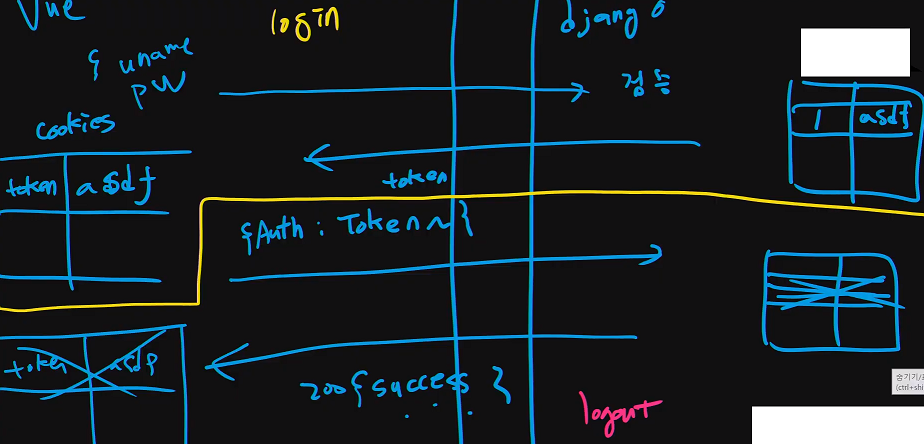 Vue
login
django
{ uname
PW
검증
cookies
token asdf
1 asdf
token
{Auth : Token ~}
token asdf
200 { success }
. . .
logout
숨기기/
(ctrl+shi